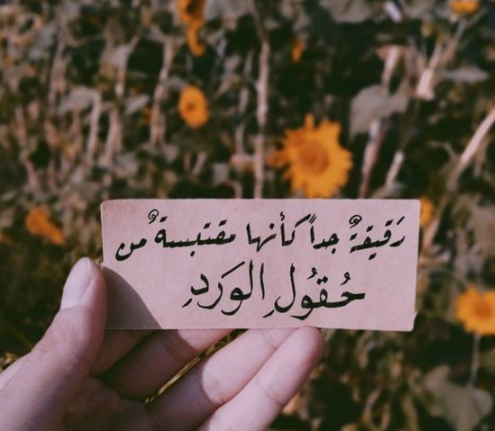 رَقيقةٌ جداً كأنها مقتبسةٌ من
حُقُولِ الوَردِ